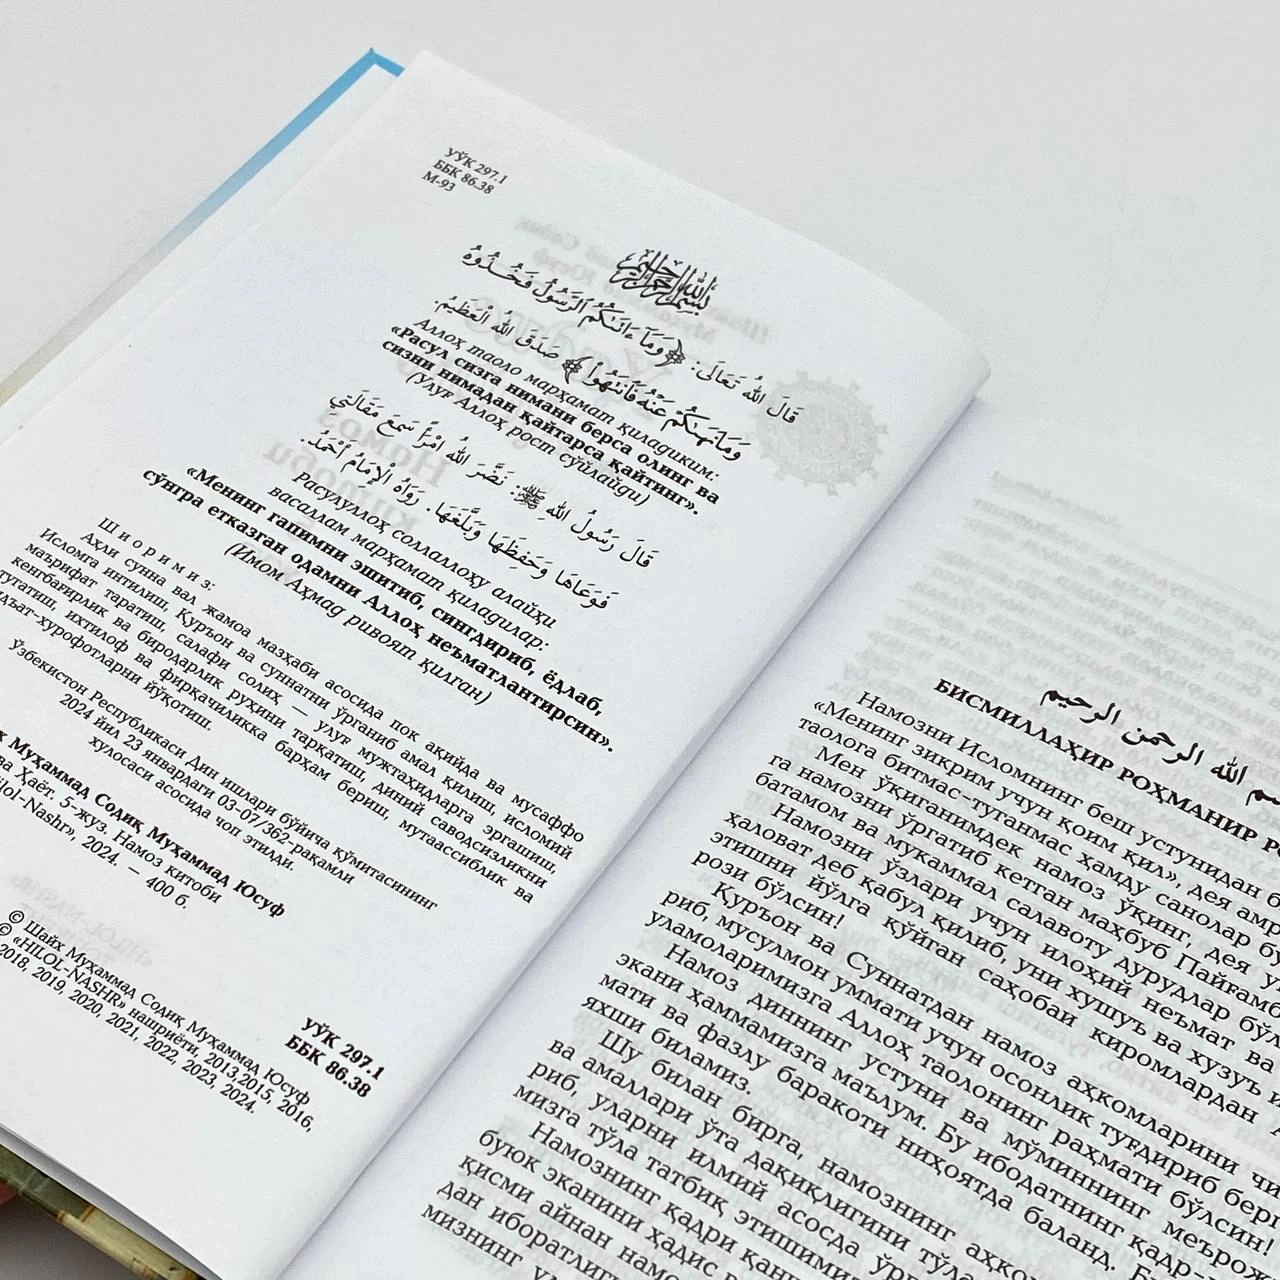 УЎК 297.1
ББК 86.38
М-93
بِسْمِ اللهِ الرَّحْمَنِ الرَّحِيمِ
قَالَ اللهُ تَعَالَى: ﴿وَمَآ ءَاتَىٰكُمُ ٱلرَّسُولُ فَخُذُوهُ
وَمَا نَهَىٰكُمْ عَنْهُ فَٱنتَهُوا۟﴾ صَدَقَ اللهُ الْعَظِيمُ.
Аллоҳ таоло марҳамат қиладиким:
«Расул сизга нимани берса олинг ва
сизни нимадан қайтарса қайтинг».
(Улуғ Аллоҳ рост сўйлайди)
قَالَ رَسُولُ اللهِ ﷺ: نَضَّرَ اللهُ امْرَأً سَمِعَ مَقَالَتِي
فَوَعَاهَا وَحَفِظَهَا وَبَلَّغَهَا. رَوَاهُ الْإِمَامُ أَحْمَدُ.
Расулуллоҳ соллаллоҳу алайҳи
васаллам марҳамат қиладилар:
«Менинг гапимни эшитиб, сингдириб, ёдлаб,
сўнгра етказган одамни Аллоҳ неъматлантирсин».
(Имом Аҳмад ривоят қилган)
Шиоримиз:
Аҳли сунна вал жамоа мазҳаби асосида пок ақийда ва мусаффо
Исломга интилиш, Қуръон ва суннатни ўрганиб амал қилиш, исломий
маърифат таратиш, салафи солиҳ — улуғ мужтаҳидларга эргашиш,
кенгбағирлик ва биродарлик руҳини тарқатиш, диний саводсизликни
тугатиш, ихтилоф ва фирқачиликка барҳам бериш, мутаассиблик ва
бидъат-хурофотларни йўқотиш.
Ўзбекистон Республикаси Дин ишлари бўйича қўмитасининг
2024 йил 23 январдаги 03-07/362-рақамли
хулосаси асосида чоп этилди.
Муҳаммад Содиқ Муҳаммад Юсуф
ва Ҳаёт. 5-жуз. Намоз китоби
«Hilol-Nashr», 2024. — 400 б.
УЎК 297.1
ББК 86.38
© Шайх Муҳаммад Содиқ Муҳаммад Юсуф
© «HILOL-NASHR» нашриёти, 2013,2015, 2016,
2018, 2019, 2020, 2021, 2022, 2023, 2024.
الله الرحمن الرحيم
БИСМИЛЛАҲИР РОҲМАНИР
Намозни Исломнинг беш устунидан
«Менинг зикрим учун қоим қил», дея
таолога битмас-туганмас ҳамду санолар
Мен ўқиганимдек намоз ўқинг, дея
га намозни ўргатиб кетган маҳбуб
батамом ва мукаммал салавоту дурудлар
Намозни ўзлари учун илоҳий неъмат ва
ҳаловат деб қабул қилиб, уни хушуъ ва хузуъ
этишни йўлга қўйган саҳобаи киромлардан
рози бўлсин!
Қуръон ва Суннатдан намоз аҳкомларини
риб, мусулмон уммати учун осонлик туғдириб
уламоларимизга Аллоҳ таолонинг раҳмати бўлсин!
Намоз диннинг устуни ва мўминнинг
экани ҳаммамизга маълум. Бу ибодатнинг қадр-
мати ва фазлу баракоти ниҳоятда баланд.
яхши биламиз.
Шу билан бирга, намознинг
ва амаллари ўта дақиқлигини
риб, уларни илмий асосда
мизга тўла татбиқ этишимиз
Намознинг қадри
буюк эканини ҳадис
қисми айнан
дан иборатлиги
мизнинг